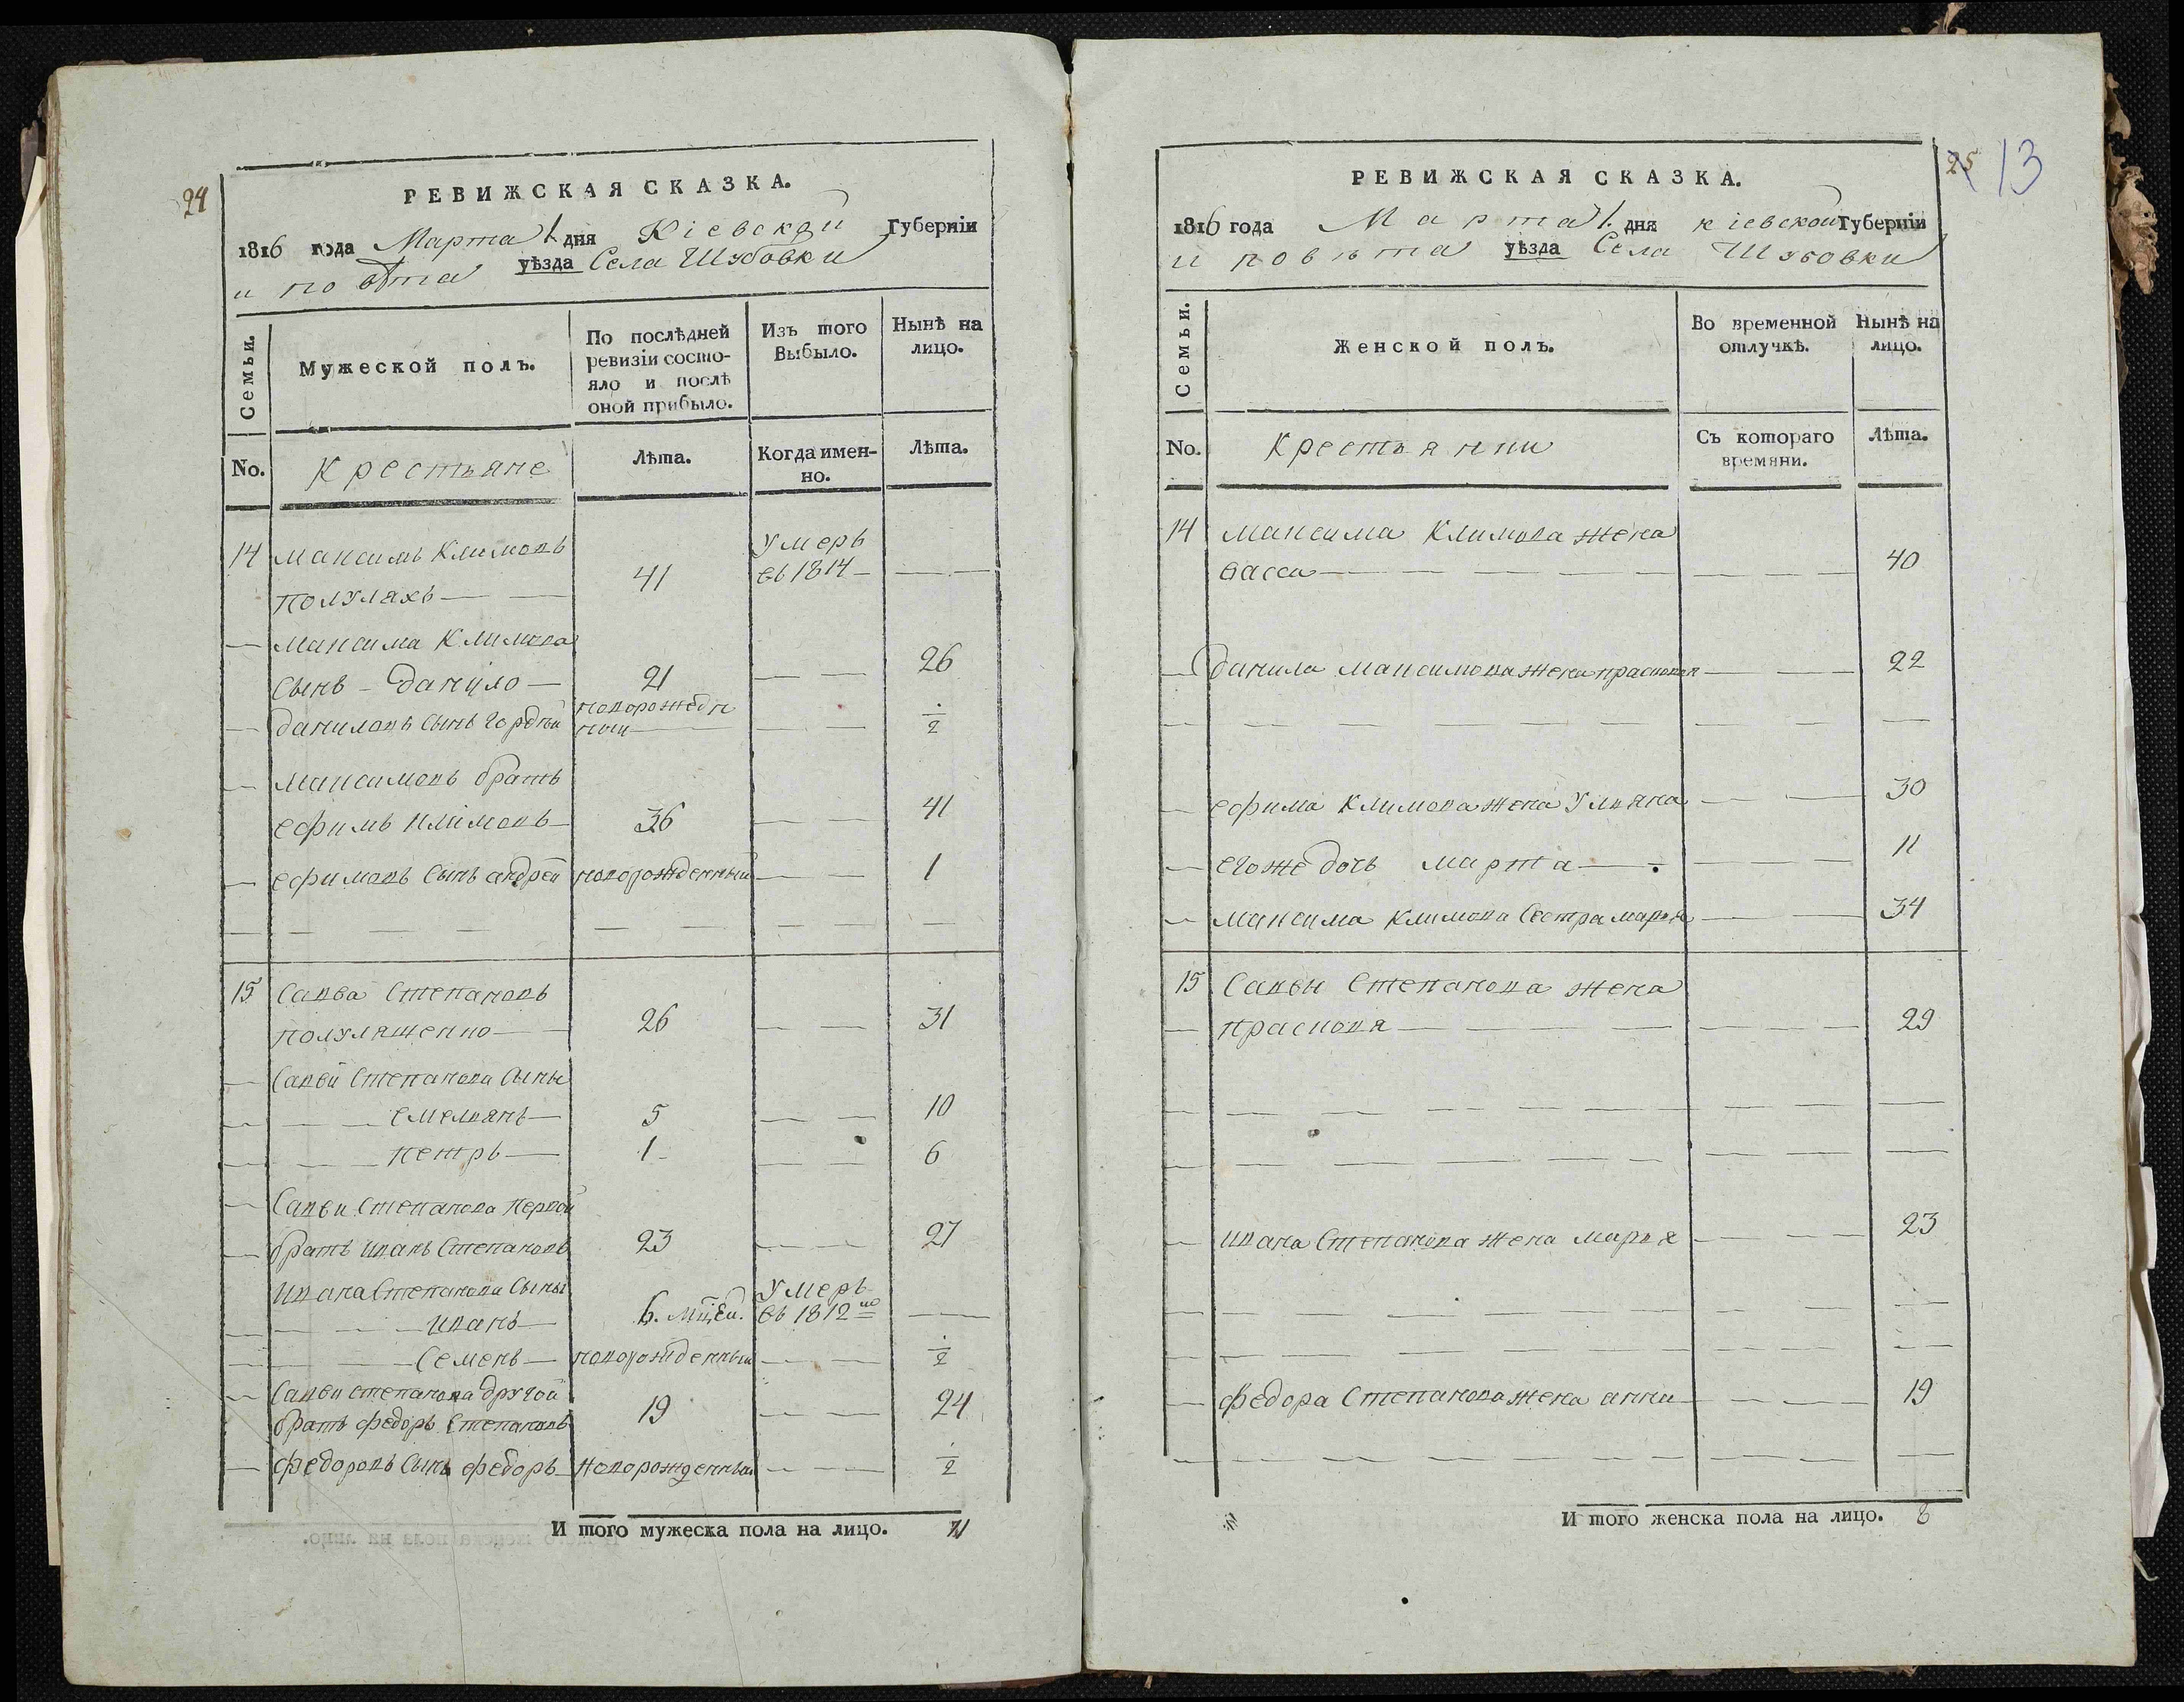 24
РЕВИЖСКАЯ СКАЗКА.
1816 года Марта 1. дня Кіевской Губерніи
и повѣта уѣзда Села Шубовки
Семьи.
Мужеской полъ.
По послѣдней ревизіи состо-
яло и послѣ
оной прибыло.
Изъ того
Выбыло.
Нынѣ на
лицо.
No.
Крестьяне
Лѣта.
Когда имен-
но.
Лѣта.
14 Максимъ Климовъ Умеръ
Полуляхъ 41 въ 1814
Максима Климова
сынъ Данило 21 26
Даниловъ сынъ Гордѣй новорожден
ный ½
Максимовъ братъ
Ефимъ Климовъ 36 41
Ефимовъ сынъ андрей новорожденный 1
15 Савва Степановъ
полулященко 26 31
Саввы Степанова сыны
емельянъ 5 10
петръ 1 6
Саввы Степанова первой
братъ иванъ Степановъ 23 27
ивана Степанова сыны Умеръ
иванъ 6. мцей. въ 1812го
Семенъ новорожденный ½
Саввы степанова другой
братъ федоръ Степановъ 19 24
федоровъ сынъ федоръ новорожденный ½
И того мужеска пола на лицо.
25 13
РЕВИЖСКАЯ СКАЗКА.
1816 года Марта 1. дня кіевской Губерніи
и повѣта уѣзда Села Шубовки
Семьи.
Женской полъ.
Во временной
отлучкѣ.
Нынѣ на
лицо.
No.
Крестьянки
Съ котораго
времяни.
Лѣта.
14 максима Климова жена
васса 40
данила максимова жена прасковия 22
ефима Климова жена Ульяна 30
егоже дочь марта 11
максима климова сестра марья 34
15 Саввы Степанова жена
прасковя 29
ивана Степанова жена марья 23
федора Степанова жена анна 19
И того женска пола на лицо. 8